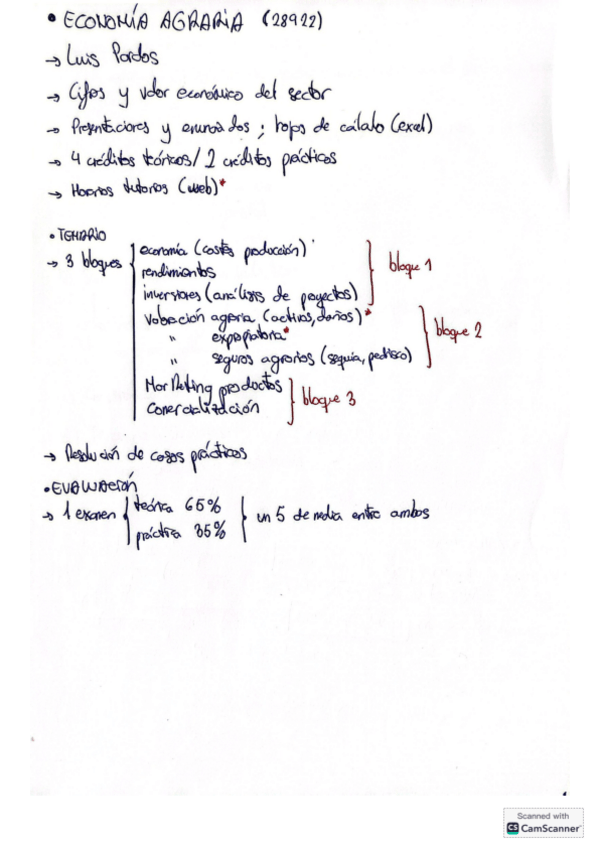 • ECONOMÍA AGRARIA (28922)
→ Luis Pardos
→ Cifras y valor económico del sector
→ Presentaciones y enunciados ; hojas de cálculo (excel)
→ 4 créditos teóricos / 2 créditos prácticos
→ Horarios tutorías (web)*
• TEMARIO
→ 3 bloques
economía (costes producción)
rendimientos
inversiones (análisis de proyectos)
bloque 1
Valoración agraria (activos, daños)*
" expropiatoria*
" seguros agrarios (sequía, pedrisco)
bloque 2
Marketing productos
Comercialización
bloque 3
→ Resolución de casos prácticos
• EVALUACIÓN
→ 1 examen
teórica 65%
práctica 35%
un 5 de media entre ambos
Scanned with
CS CamScanner